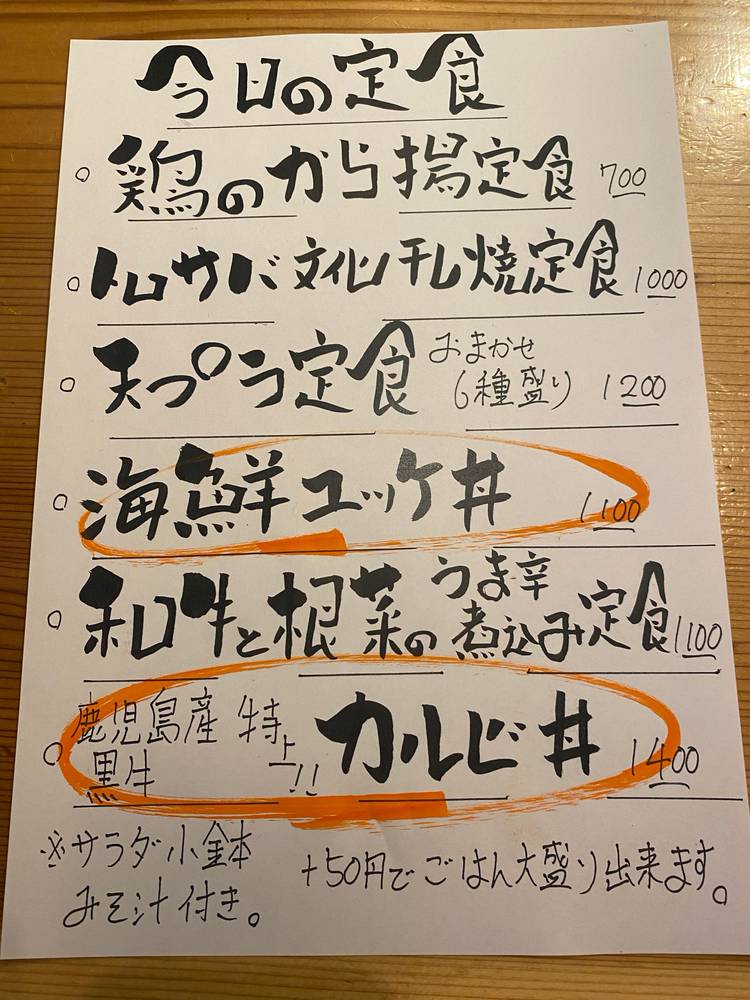 今日の定食
。鶏のから揚定食 700
。トロサバ文化干し焼定食 1000
。天プラ定食 おまかせ 6種盛り 1200
。海鮮ユッケ丼 1100
。和牛と根菜のうま辛煮込み定食 1100
。鹿児島産黒牛 特上!! カルビ丼 1400
※サラダ小鉢
みそ汁付き。
+50円でごはん大盛り出来ます。